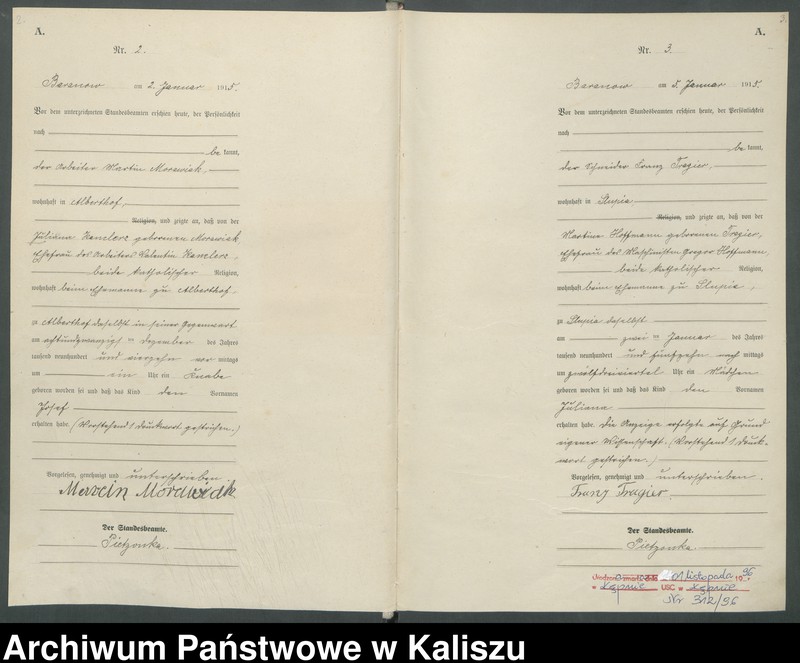 2.
A.
Nr. 2.
Baranow am 2. Januar 1915.
Vor dem unterzeichneten Standesbeamten erschien heute, der Persönlichkeit
nach
be kannt,
der Arbeiter Martin Morawiak,
wohnhaft in Alberthof,
Religion, und zeigte an, daß von der
Juliana Kanclerz geborenen Morawiak,
Ehefrau des Arbeiters Valentin Kanclerz
beide katholischer Religion,
wohnhaft beim Ehemanne zu Alberthof
zu Alberthof daselbst in seiner Gegenwart
am achtundzwanzigsten Dezember des Jahres
tausend neunhundert und vierzehn vor mittags
um ein Uhr ein Knabe
geboren worden sei und daß das Kind den Vornamen
Josef
erhalten habe. (Vorstehend 1 Druckwort gestrichen.)
Vorgelesen, genehmigt und unterschrieben.
Marcin
Der Standesbeamte.
Pietzonka.
3.
A.
Nr. 3.
Baranow am 5. Januar 1915.
Vor dem unterzeichneten Standesbeamten erschien heute, der Persönlichkeit
nach
be kannt,
der Schneider Franz Fragier,
wohnhaft in Slupia
Religion, und zeigte an, daß von der
Martina Hoffmann geborenen Fragier,
Ehefrau des Maschinisten Gregor Hoffmann,
beide katholischer Religion,
wohnhaft beim Ehemanne zu Slupia,
zu Slupia daselbst
am zwei ten Januar des Jahres
tausend neunhundert und fünfzehn nach mittags
um zwölfdreiviertel Uhr ein Mädchen
geboren worden sei und daß das Kind den Vornamen
Juliana
erhalten habe. Die Anzeige erfolgte auf Grund
eigener Wissenschaft. (Vorstehend 1 Druck-
wort gestrichen.)
Vorgelesen, genehmigt und unterschrieben.
Franz Fragier.
Der Standesbeamte.
Pietzonka.
01 listopada 1996
w Kępnie USC w Kępnie
Nr 312/96
Archiwum Państwowe w Kaliszu